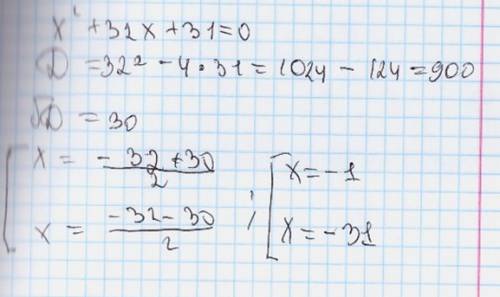 x² + 32x + 31 = 0
D = 32² - 4 · 31 = 1024 - 124 = 900
√D = 30
[ x = (-32 + 30)/2
x = (-32 - 30)/2 ; [ x = -1
x = -31